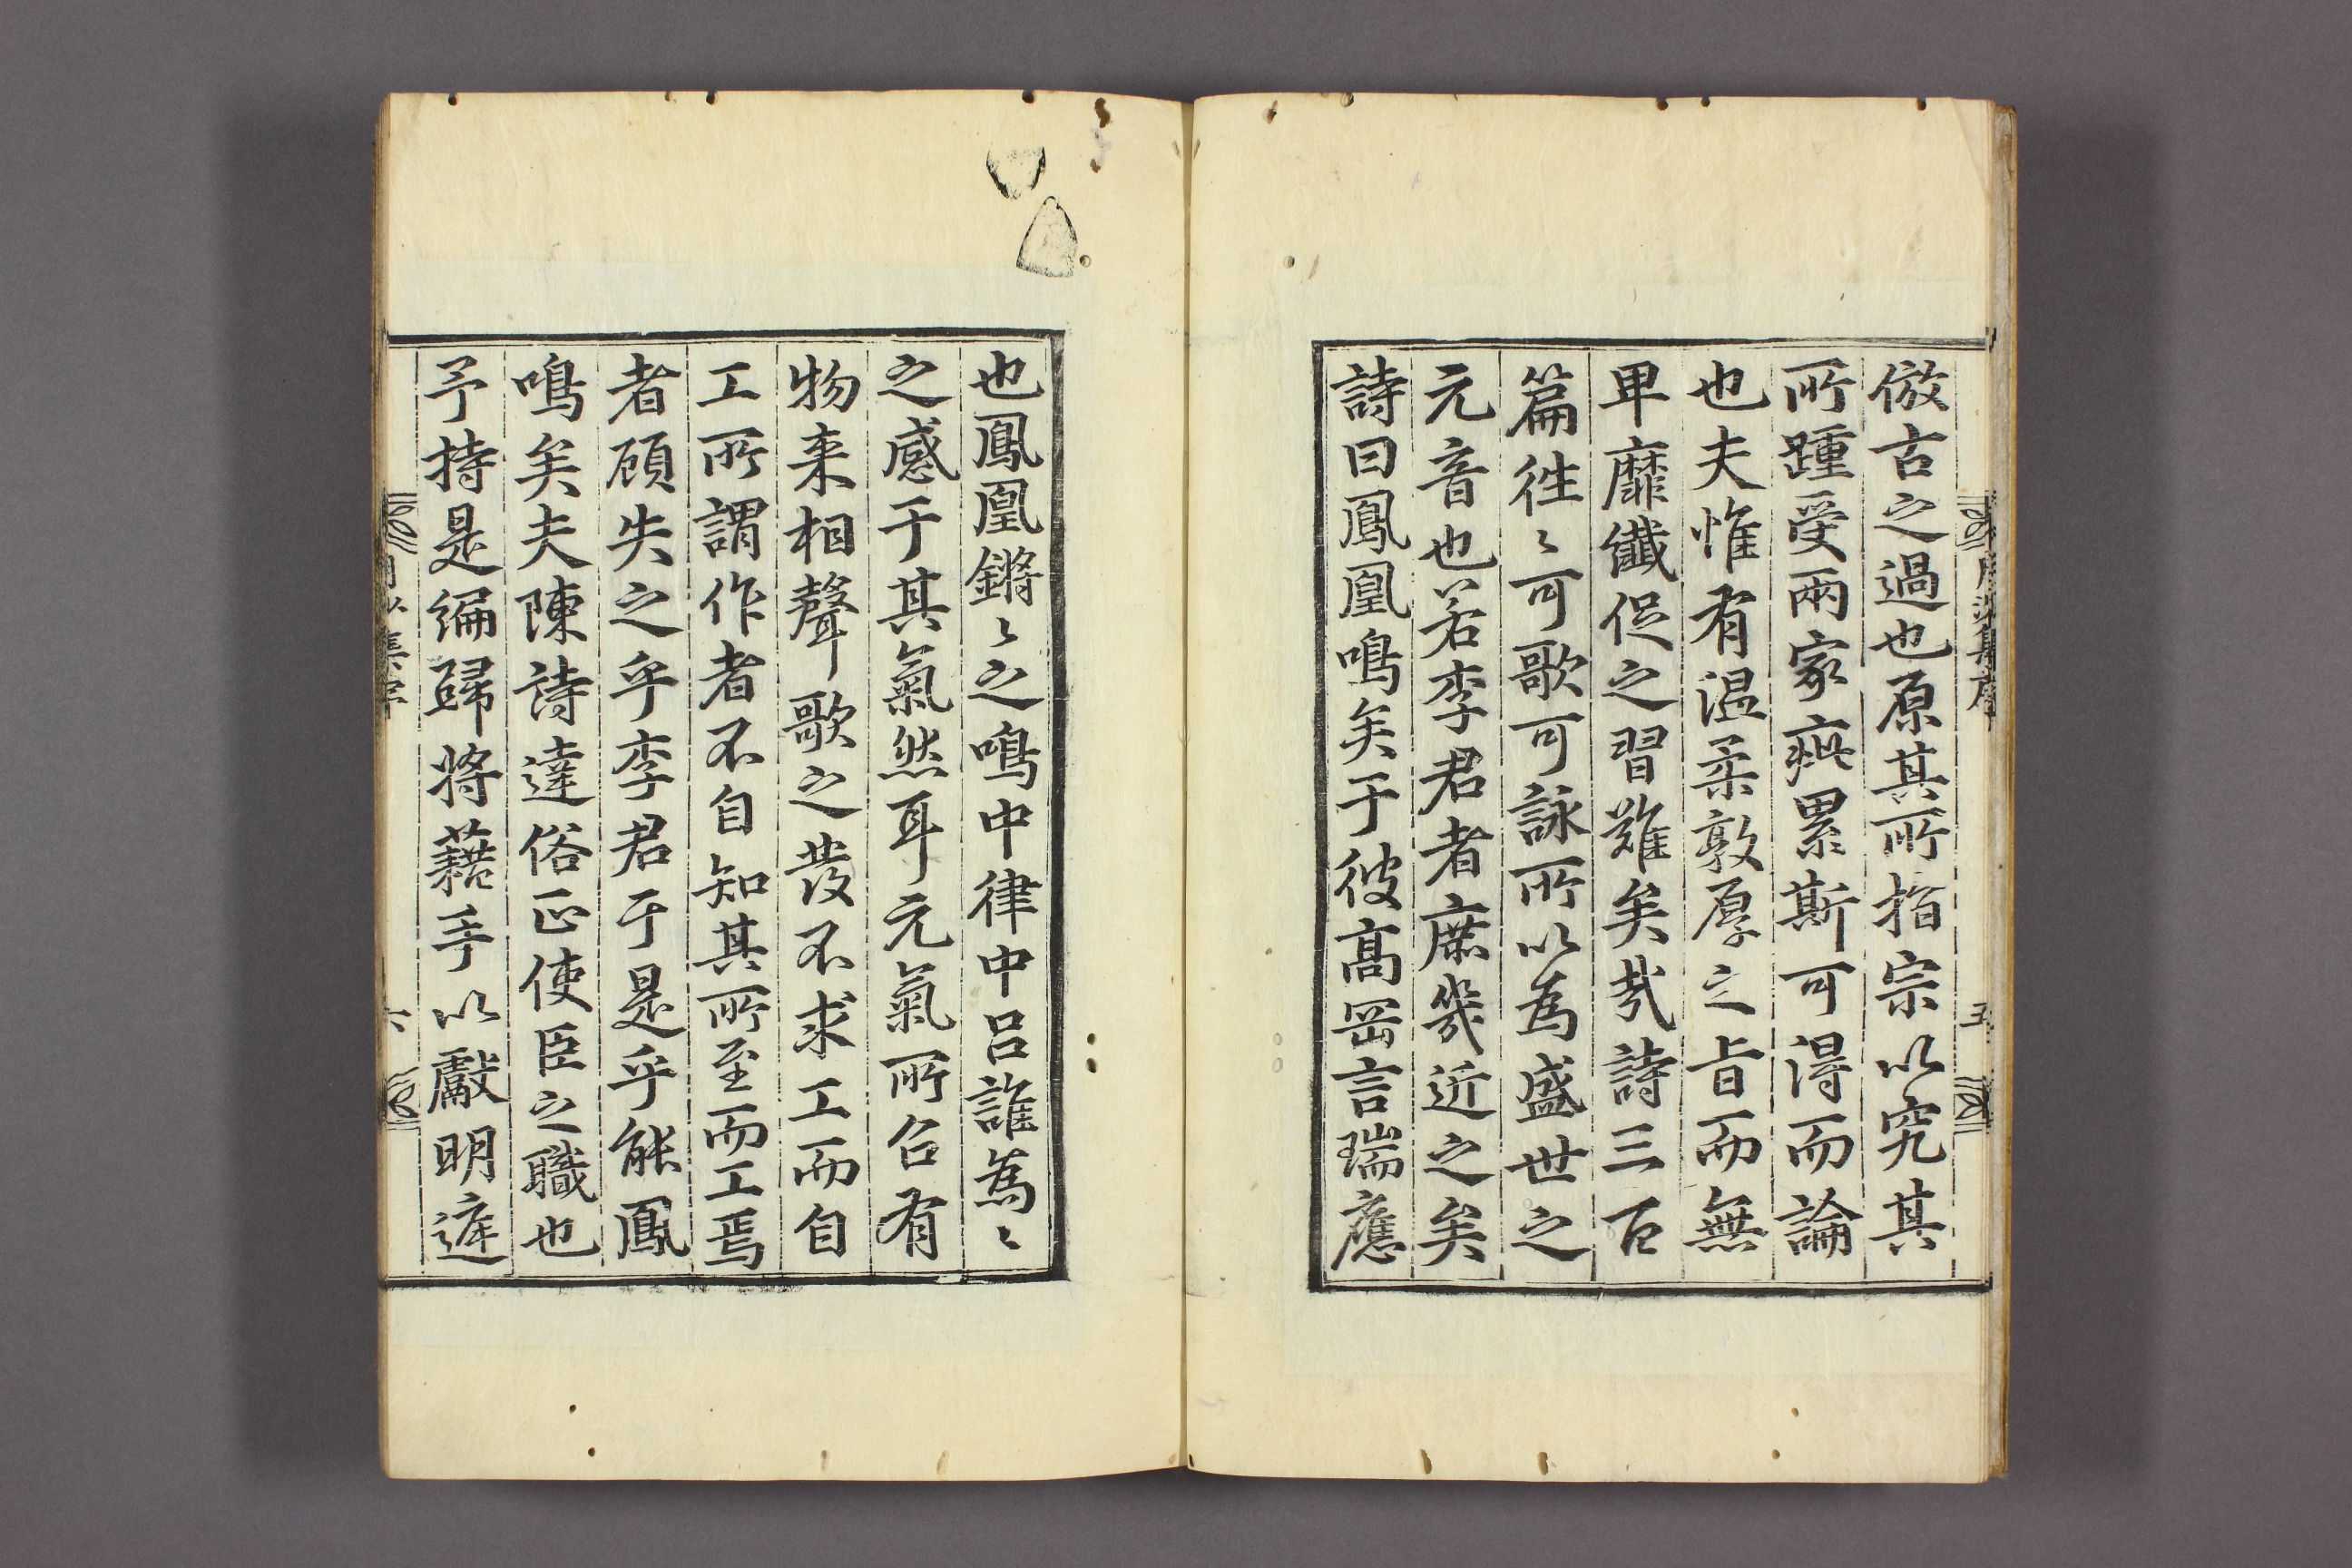 倣古之過也原其所指宗以究其
所踵受兩家疵累斯可得而論
也夫惟有温柔敦厚之旨而無
卑靡纖促之習難矣㢤詩三百
篇徃〻可歌可詠所以為盛世之
元音也若李君者庶幾近之矣
詩曰鳳凰鳴矣于彼髙岡言瑞應
也鳳凰鏘〻之鳴中律中呂誰為〻
之感于其氣然耳元氣所召有
物来相聲歌之發不求工而自
工所謂作者不自知其所至而工焉
者顧失之乎李君于是乎能鳳
鳴矣夫陳詩達俗正使臣之職也
予持是編歸將藉手以獻明